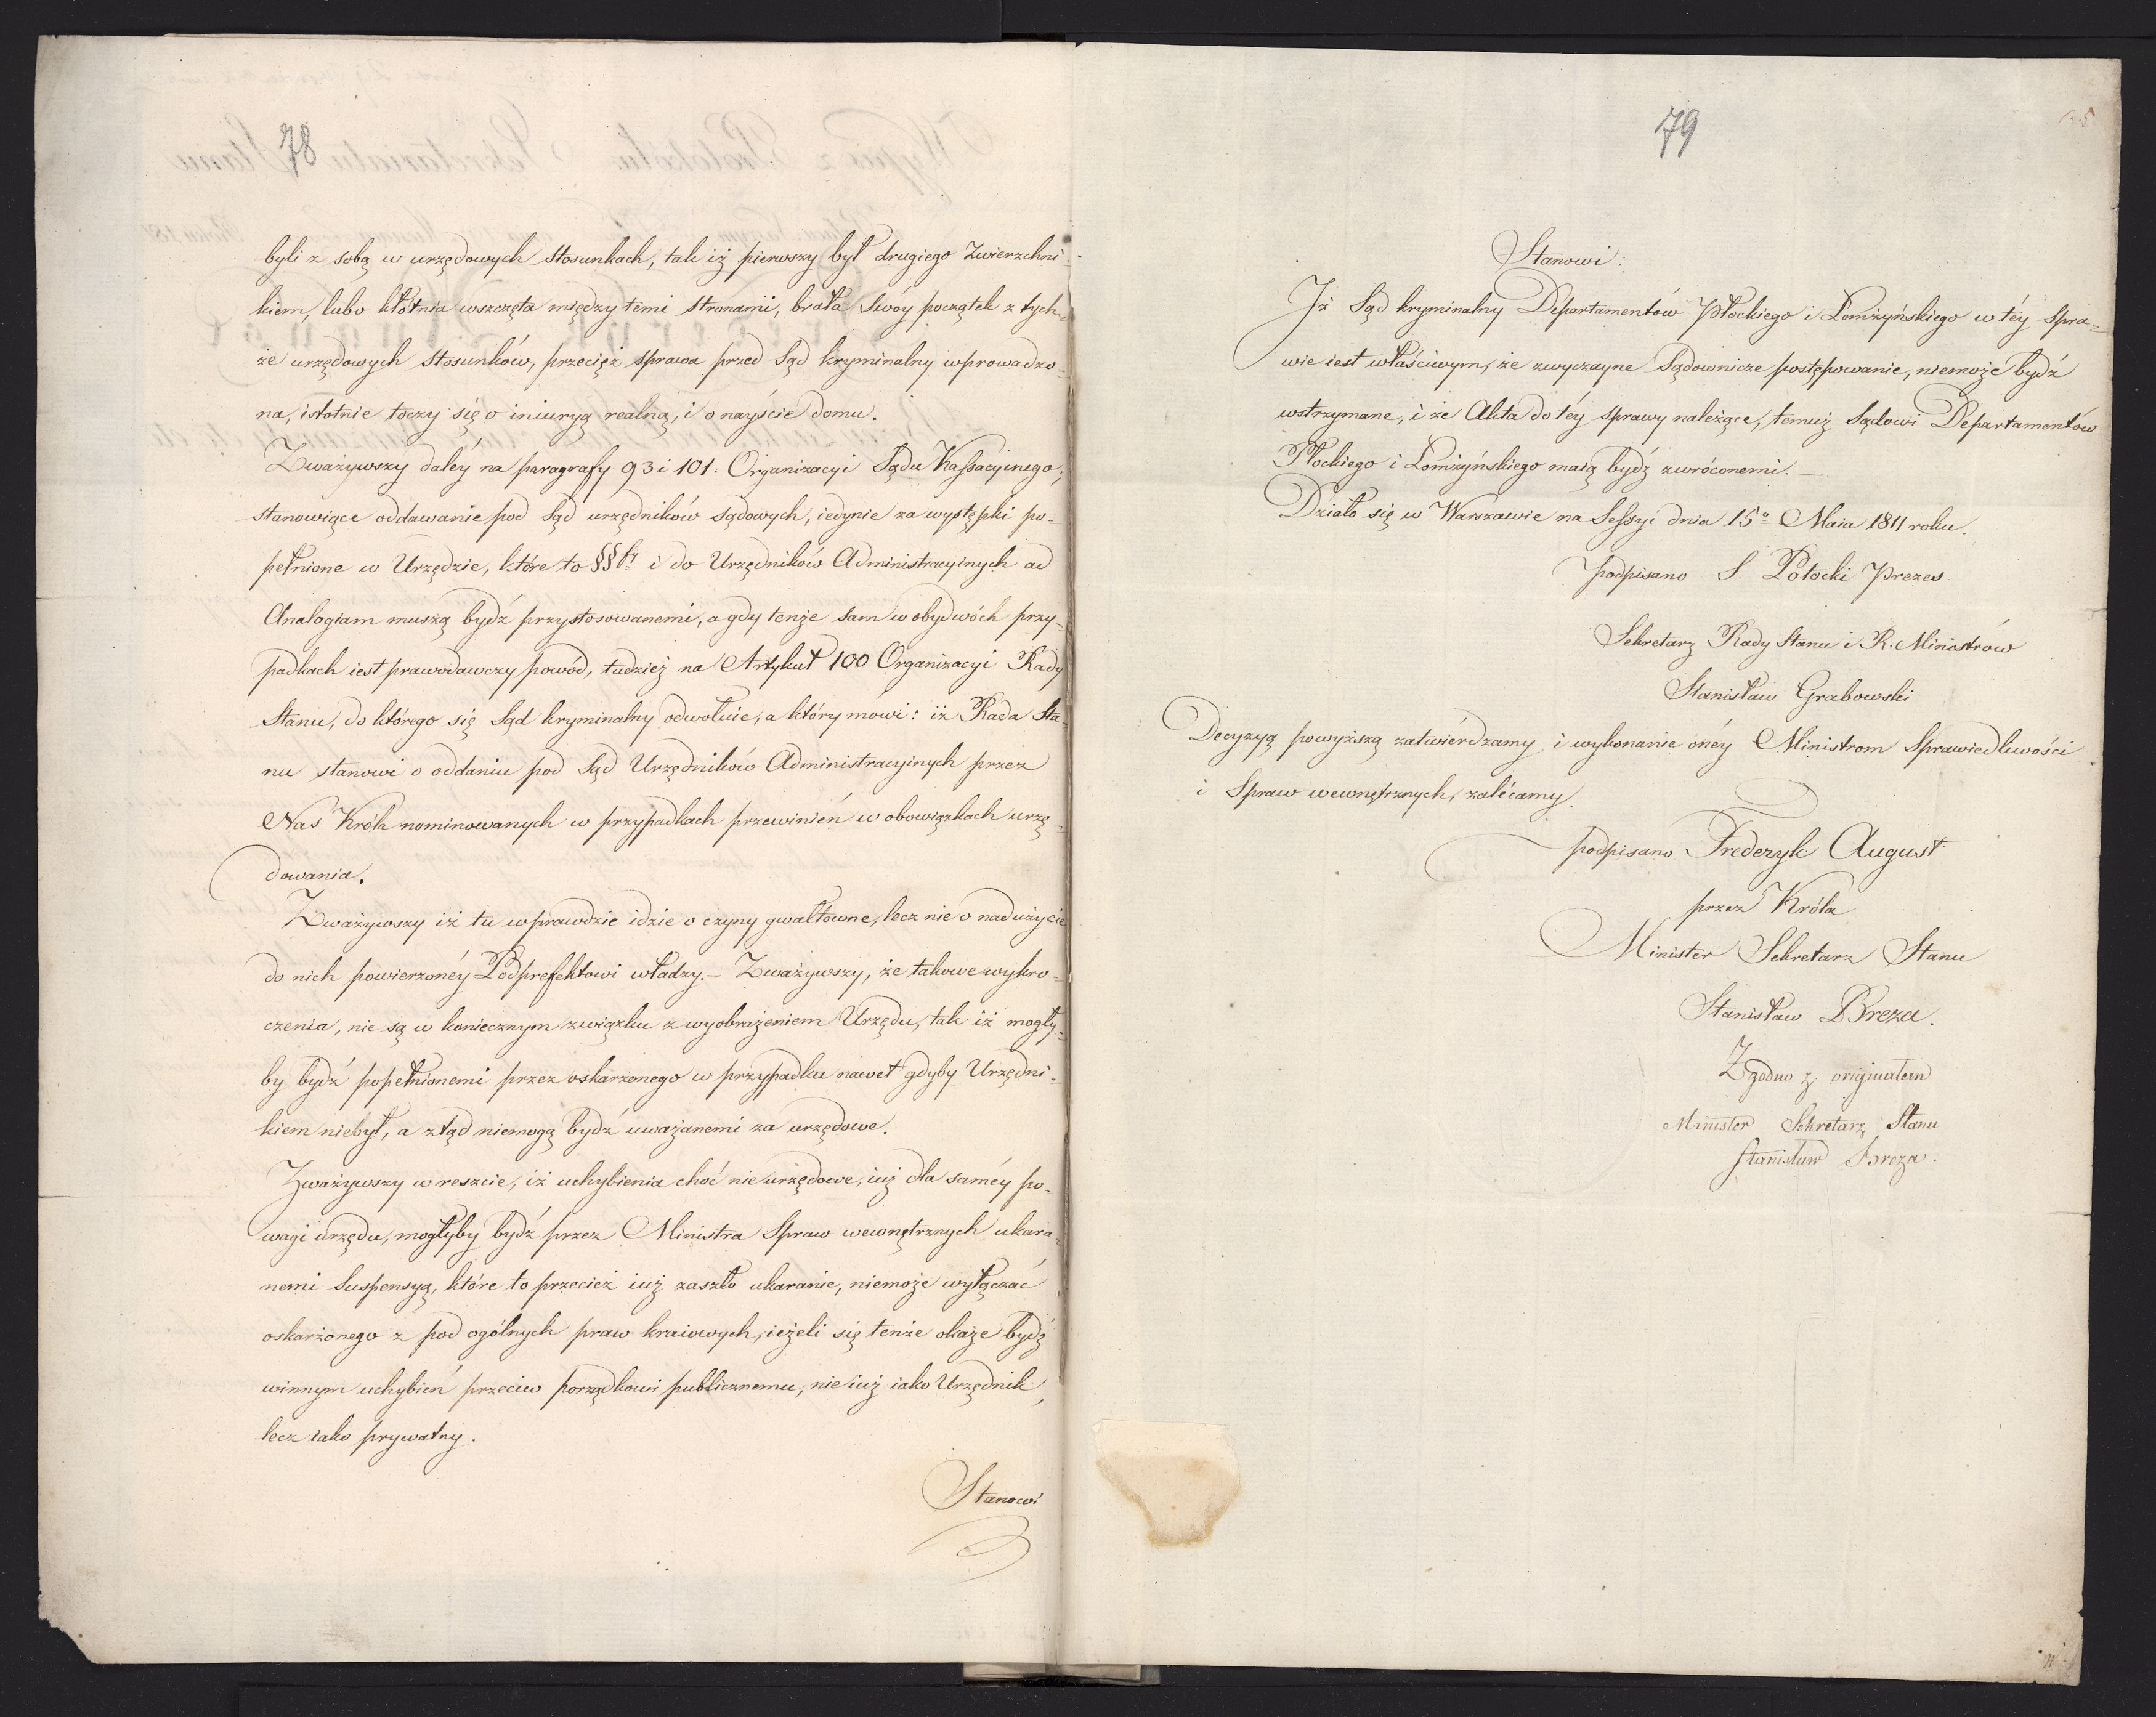 78
byli z sobą w urzędowych stosunkach, tak iż pierwszy był drugiego Zwierzchni-
kiem, lubo kłótnia wszczęta między temi stronami, brała swóy początek z tych-
że urzędowych stosunków, przecięż sprawa przed Sąd kryminalny wprowadzo-
na, istotnie toczy się o iniuryą realną, i o nayście domu.
Zważywszy daléy na paragrafy 93 i 101. Organizacyi Sądu Kassacyinego,
stanowiące oddawanie pod Sąd urzędników sądowych, iedynie za występki po-
pełnione w Urzędzie, które to §§ fy i do Urzędników Administracyinych ad
Analogiam muszą bydź przystosowanemi, a gdy tenże sam w obydwóch przy-
padkach iest prawodawczy powód, tudzież na Artykuł 100 Organizacyi Rady
Stanu, do którego się Sąd kryminalny odwołuie, a który mówi: iż Rada Sta-
nu stanowi o oddaniu pod Sąd Urzędników Administracyinych przez
Nas Króla nominowanych w przypadkach przewinień w obowiązkach urzę-
dowania.
Zważywszy iż tu wprawdzie idzie o czyny gwałtowne, lecz nie o nadużycie
do nich powierzonéy Podprefektowi władzy. – Zważywszy, że takowe wykro-
czenia, nie są w koniecznym związku z wyobrażeniem Urzędu, tak iż mogły-
by bydź popełnionemi przez oskarżonego w przypadku nawet gdyby Urzędni-
kiem niebył, a ztąd niemogą bydź uważanemi za urzędowe.
Zważywszy w reszcie, iż uchybienia choć nie urzędowe, iuż dla saméy po-
wagi urzędu, mogłyby bydź przez Ministra Spraw wewnętrznych ukara-
nemi Suspensyą, które to przecież iuż zaszło ukaranie, niemoże wyłączać
oskarżonego z pod ogólnych praw kraiowych, ieżeli się tenże okaże bydź
winnym uchybień przeciw porządkowi publicznemu, nie iuż iako Urzędnik,
lecz iako prywatny.
Stanowi
79
Stanowi:
Iż Sąd kryminalny Departamentów Płockiego i Łomżyńskiego w téy spra-
wie iest właściwym, że zwyczayne Sądownicze postępowanie, niemoże bydź
wstrzymane, i że Akta do téy sprawy należące, temuż Sądowi Departamentów
Płockiego i Łomżyńskiego maią bydź zwróconemi. –
Działo się w Warszawie na Sessyi dnia 15o Maia 1811 roku.
podpisano S. Potocki Prezes.
Sekretarz Rady Stanu i R. Ministrów
Stanisław Grabowski
Decyzyą powyższą zatwiérdzamy, i wykonanie onéy Ministrom Sprawiedliwości
i Spraw wewnętrznych, zalécamy.
podpisano Frederyk August
przez Króla
Minister Sekretarz Stanu
Stanisław Breza.
Zgodno z originałem
Minister Sekretarz Stanu
Stanisław Breza.